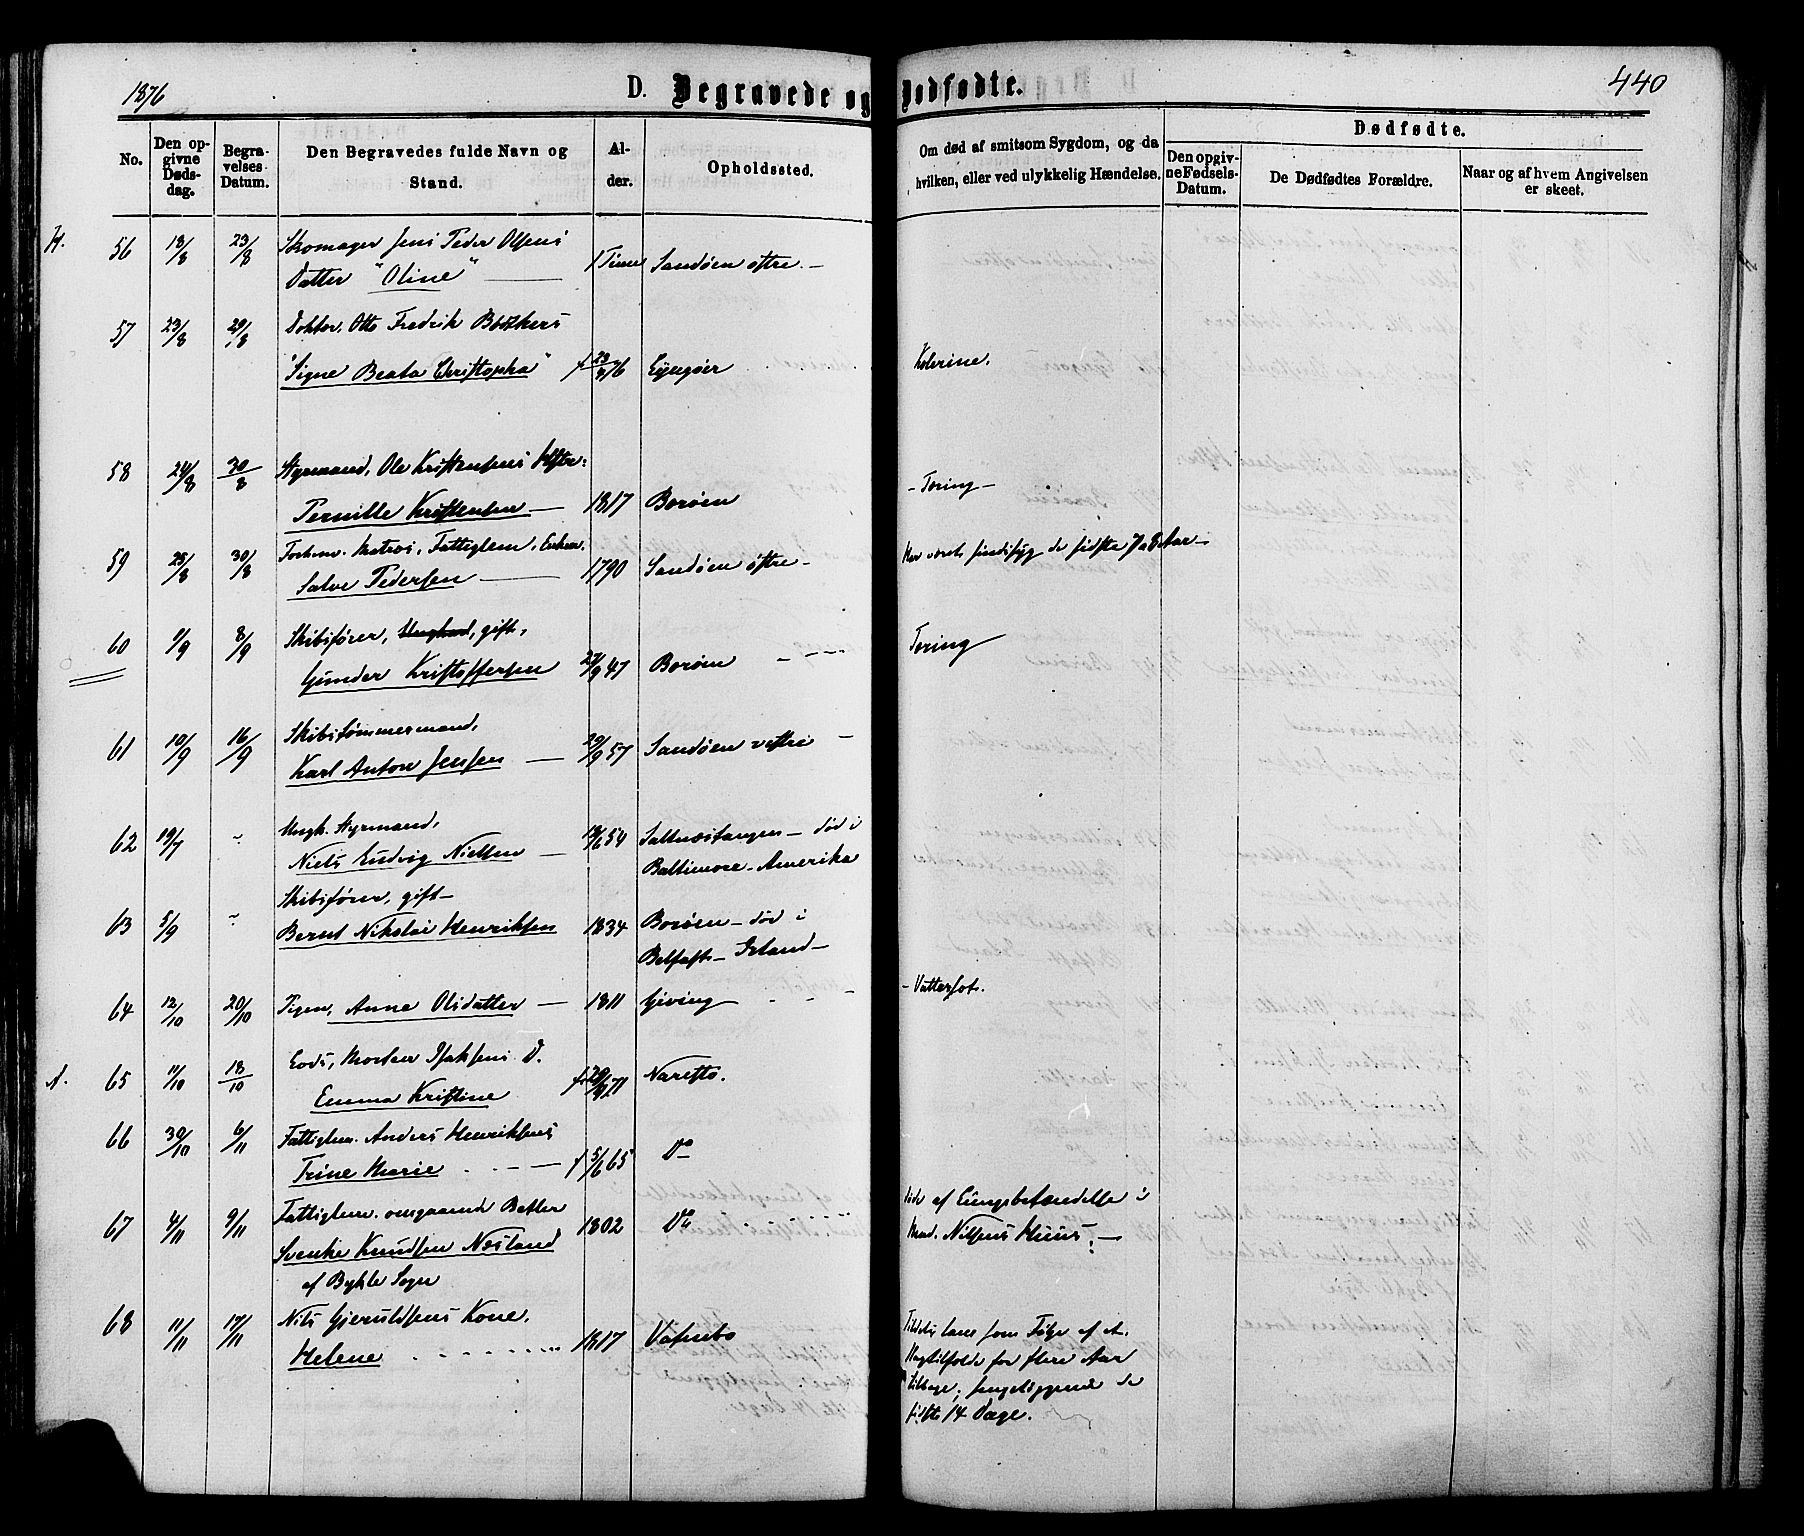 1876
D. Begravede og Dødfødte.
440
No.
Den opgivne Dødsdag.
Begravelses-Datum.
Den Begravedes fulde Navn og Stand.
Alder.
Opholdssted.
Om død af smitsom Sygdom, og da hvilken, eller ved ulykkelig Hændelse.
Dødfødte.
Den opgivne Fødsels-Datum.
De Dødfødtes Forældre.
Naar og af hvem Angivelsen er skeet.
56 18/8 23/8 Skomager Jens Peder Olsens
Datter "Oline" 1 Time Sandøen østre
57 23/8 29/8 Doktor, Otto Fredrik
"Signe Beata Christopha" f 76 Kolerine.
58 24/8 30/8 Styrmand, Ole Kristensens
Pernille Kristensen 1817 Borøen - Tæring -
59 25/8 30/8 Matros, Fattiglem, Enkem.
Salve Pedersen 1790 Sandøen østre Har været sindssyg de sidste 7 a 8 Aar
60 1/9 8/9 Skibsfører, gift,
Gunder Kristoffersen 27/9 47 Borøen Tæring
61 10/9 16/9 Skibstømmermand,
Karl Anton Jensen 20/9 57 Sandøen vestre
62 19/7 " Ungk. Styrmand,
Niels Ludvig Nielsen 54 Saltnæstangen - død i
Baltimore - Amerika
Skibsfører, gift
63 5/9 " Bernt Nikolai Henriksen 1834 Borøen - død i
Belfast - Irland
64 12/10 20/10 Pigen, Anne Olsdatter 1811 Giving - Vattersot.
65 11/10 18/10 Lods, Morten Isaksens D.
Emma Kristine 71 Narestø.
66 30/10 6/11 Fattiglem. Anders Henriksens
Trine Marie f 5/6 65 Do
67 4/11 9/11 Fattiglem. omgaaende Betler
Svenke Knudsen Næsland 1802 Do
af Bykle Sogn
Døde af Lungebetændelse i
Mad. Nilsens Huus.
68 11/11 17/11 Nils Gjeruldsens Kone,
Helene 1817 Vatnebo
som Følge af et
for flere Aar
tilbage; sengeliggende de
sidste 14 Dage.